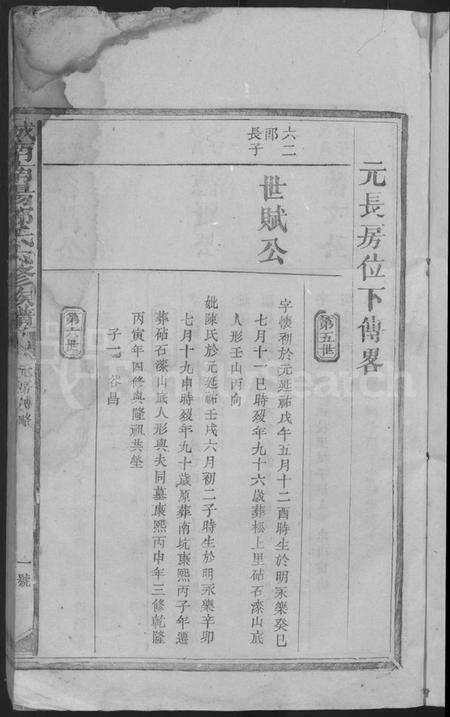 元長房位下傳畧
第五世
六二郎長子
世賦公
字懷初於元延祐戊午五月十二酉時生於明永樂癸巳
七月十一巳時歿年九十六歲葬松上里砧石漈山底
人形壬山丙向
妣陳氏於元延祐壬戌六月初二子時生於明永樂辛卯
七月十九申時歿年九十歲原葬南坑康熙丙子年遷
葬砧石漈山底人形與夫同墓康熙丙申年三修乾隆
丙寅年四修與隆祖共塋
子一 谷昌
第六世
一號